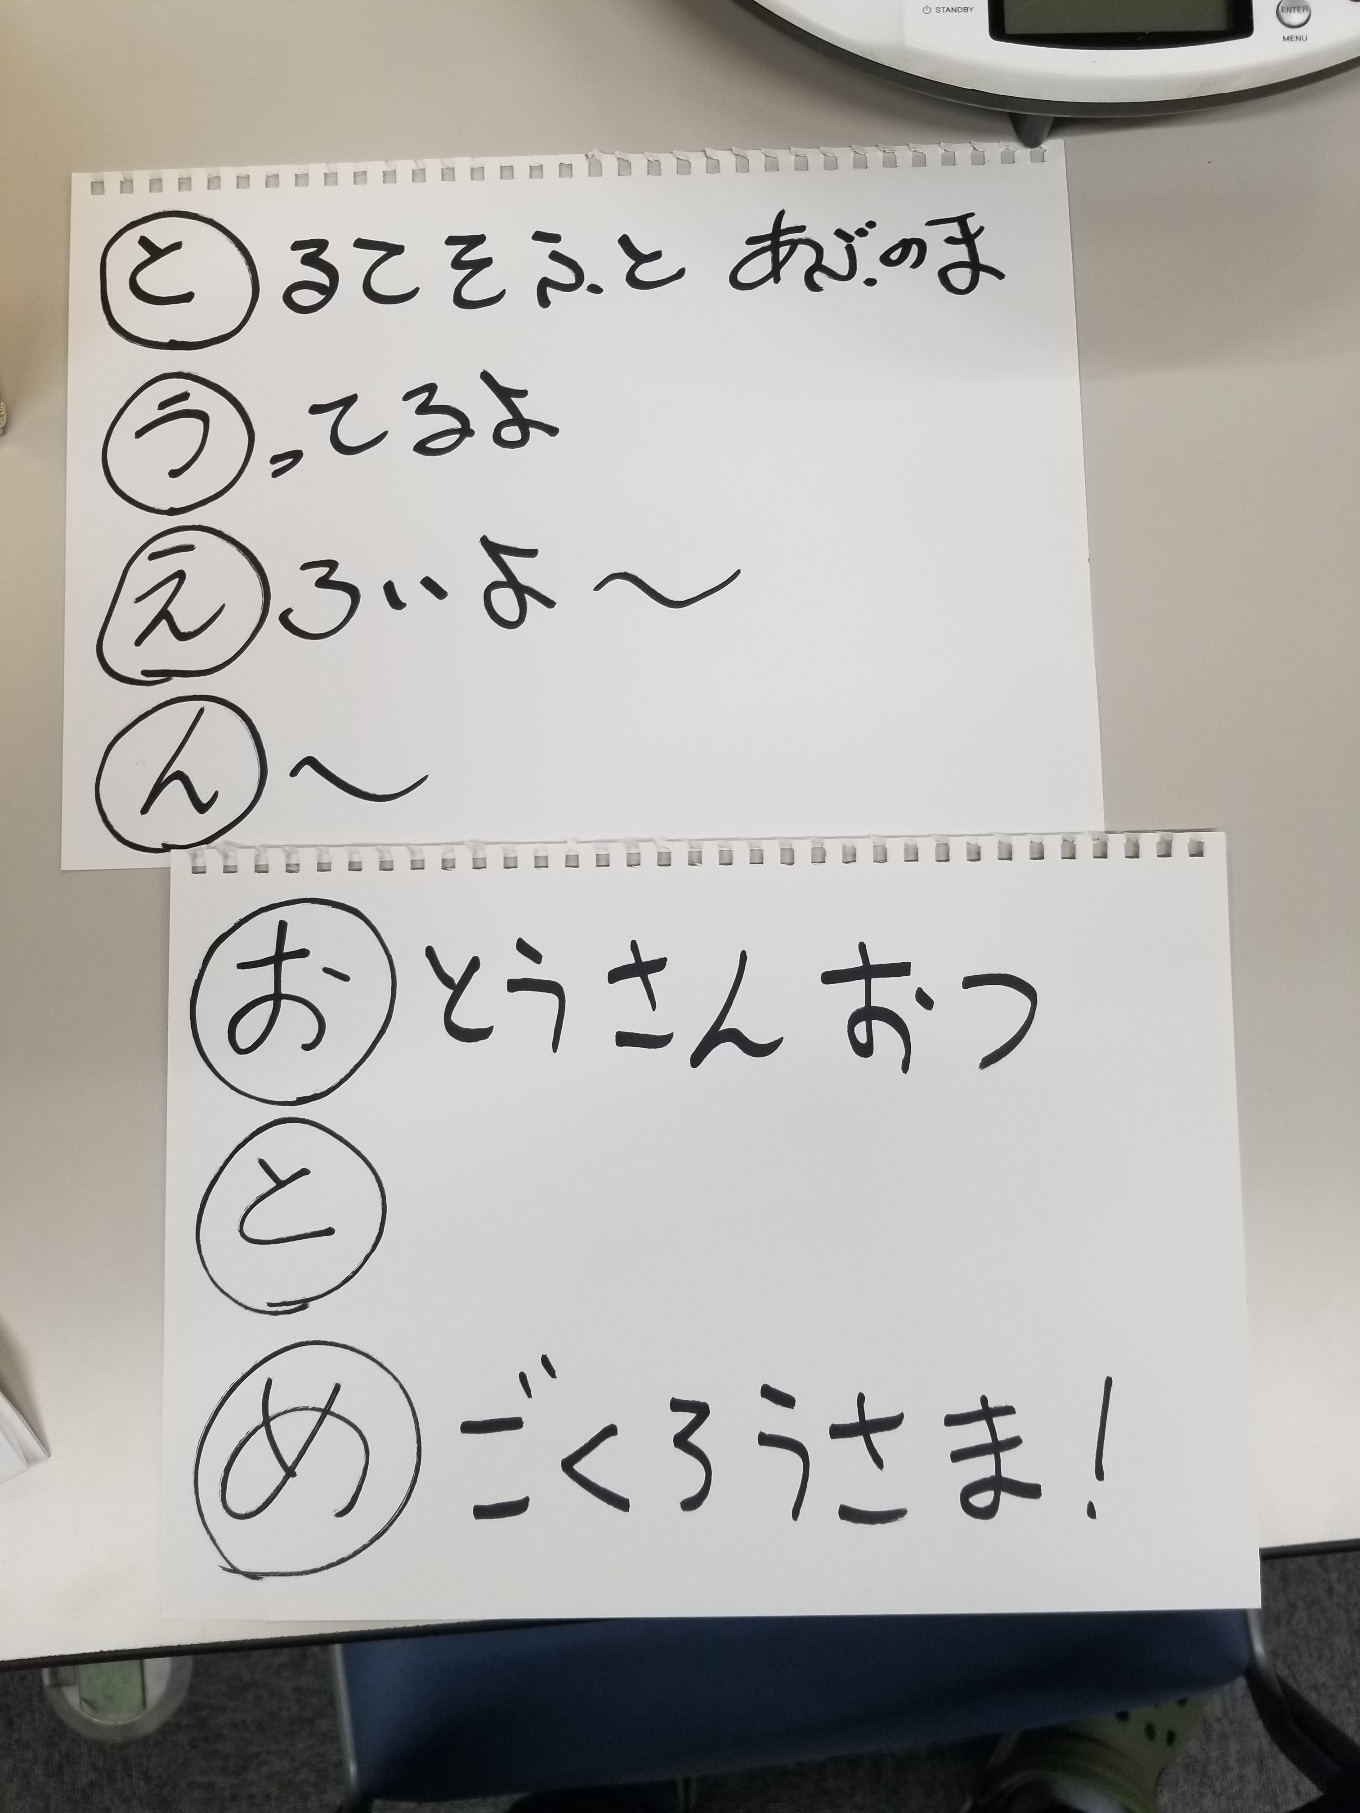 STANDBY
ENTER
MENU
とるてそふと あんぶのま
うってるよ
えろいよ〜
ん〜
おとうさん おつ
と
めごくろうさま!